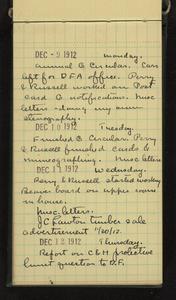 DEC - 9 1912 Monday.
Annual G Circular. Cars
left for D.F.A office. Perry
& Russell worked on Post
Card G notifications. Misc
letters
stenography.
DEC 10 1912 Tuesday.
Finished G Circular. Perry
& Russell finished cards &
mimeographing. Misc letters
DEC 11 1912 Wednesday.
Perry & Russell started working
Beaver board on upper rooms
in house.
Misc. letters.
J C Lawton timber sale
advertisement 1/20/12.
DEC 12 1912 Thursday.
Report on C & H protective
limit question to D.F.